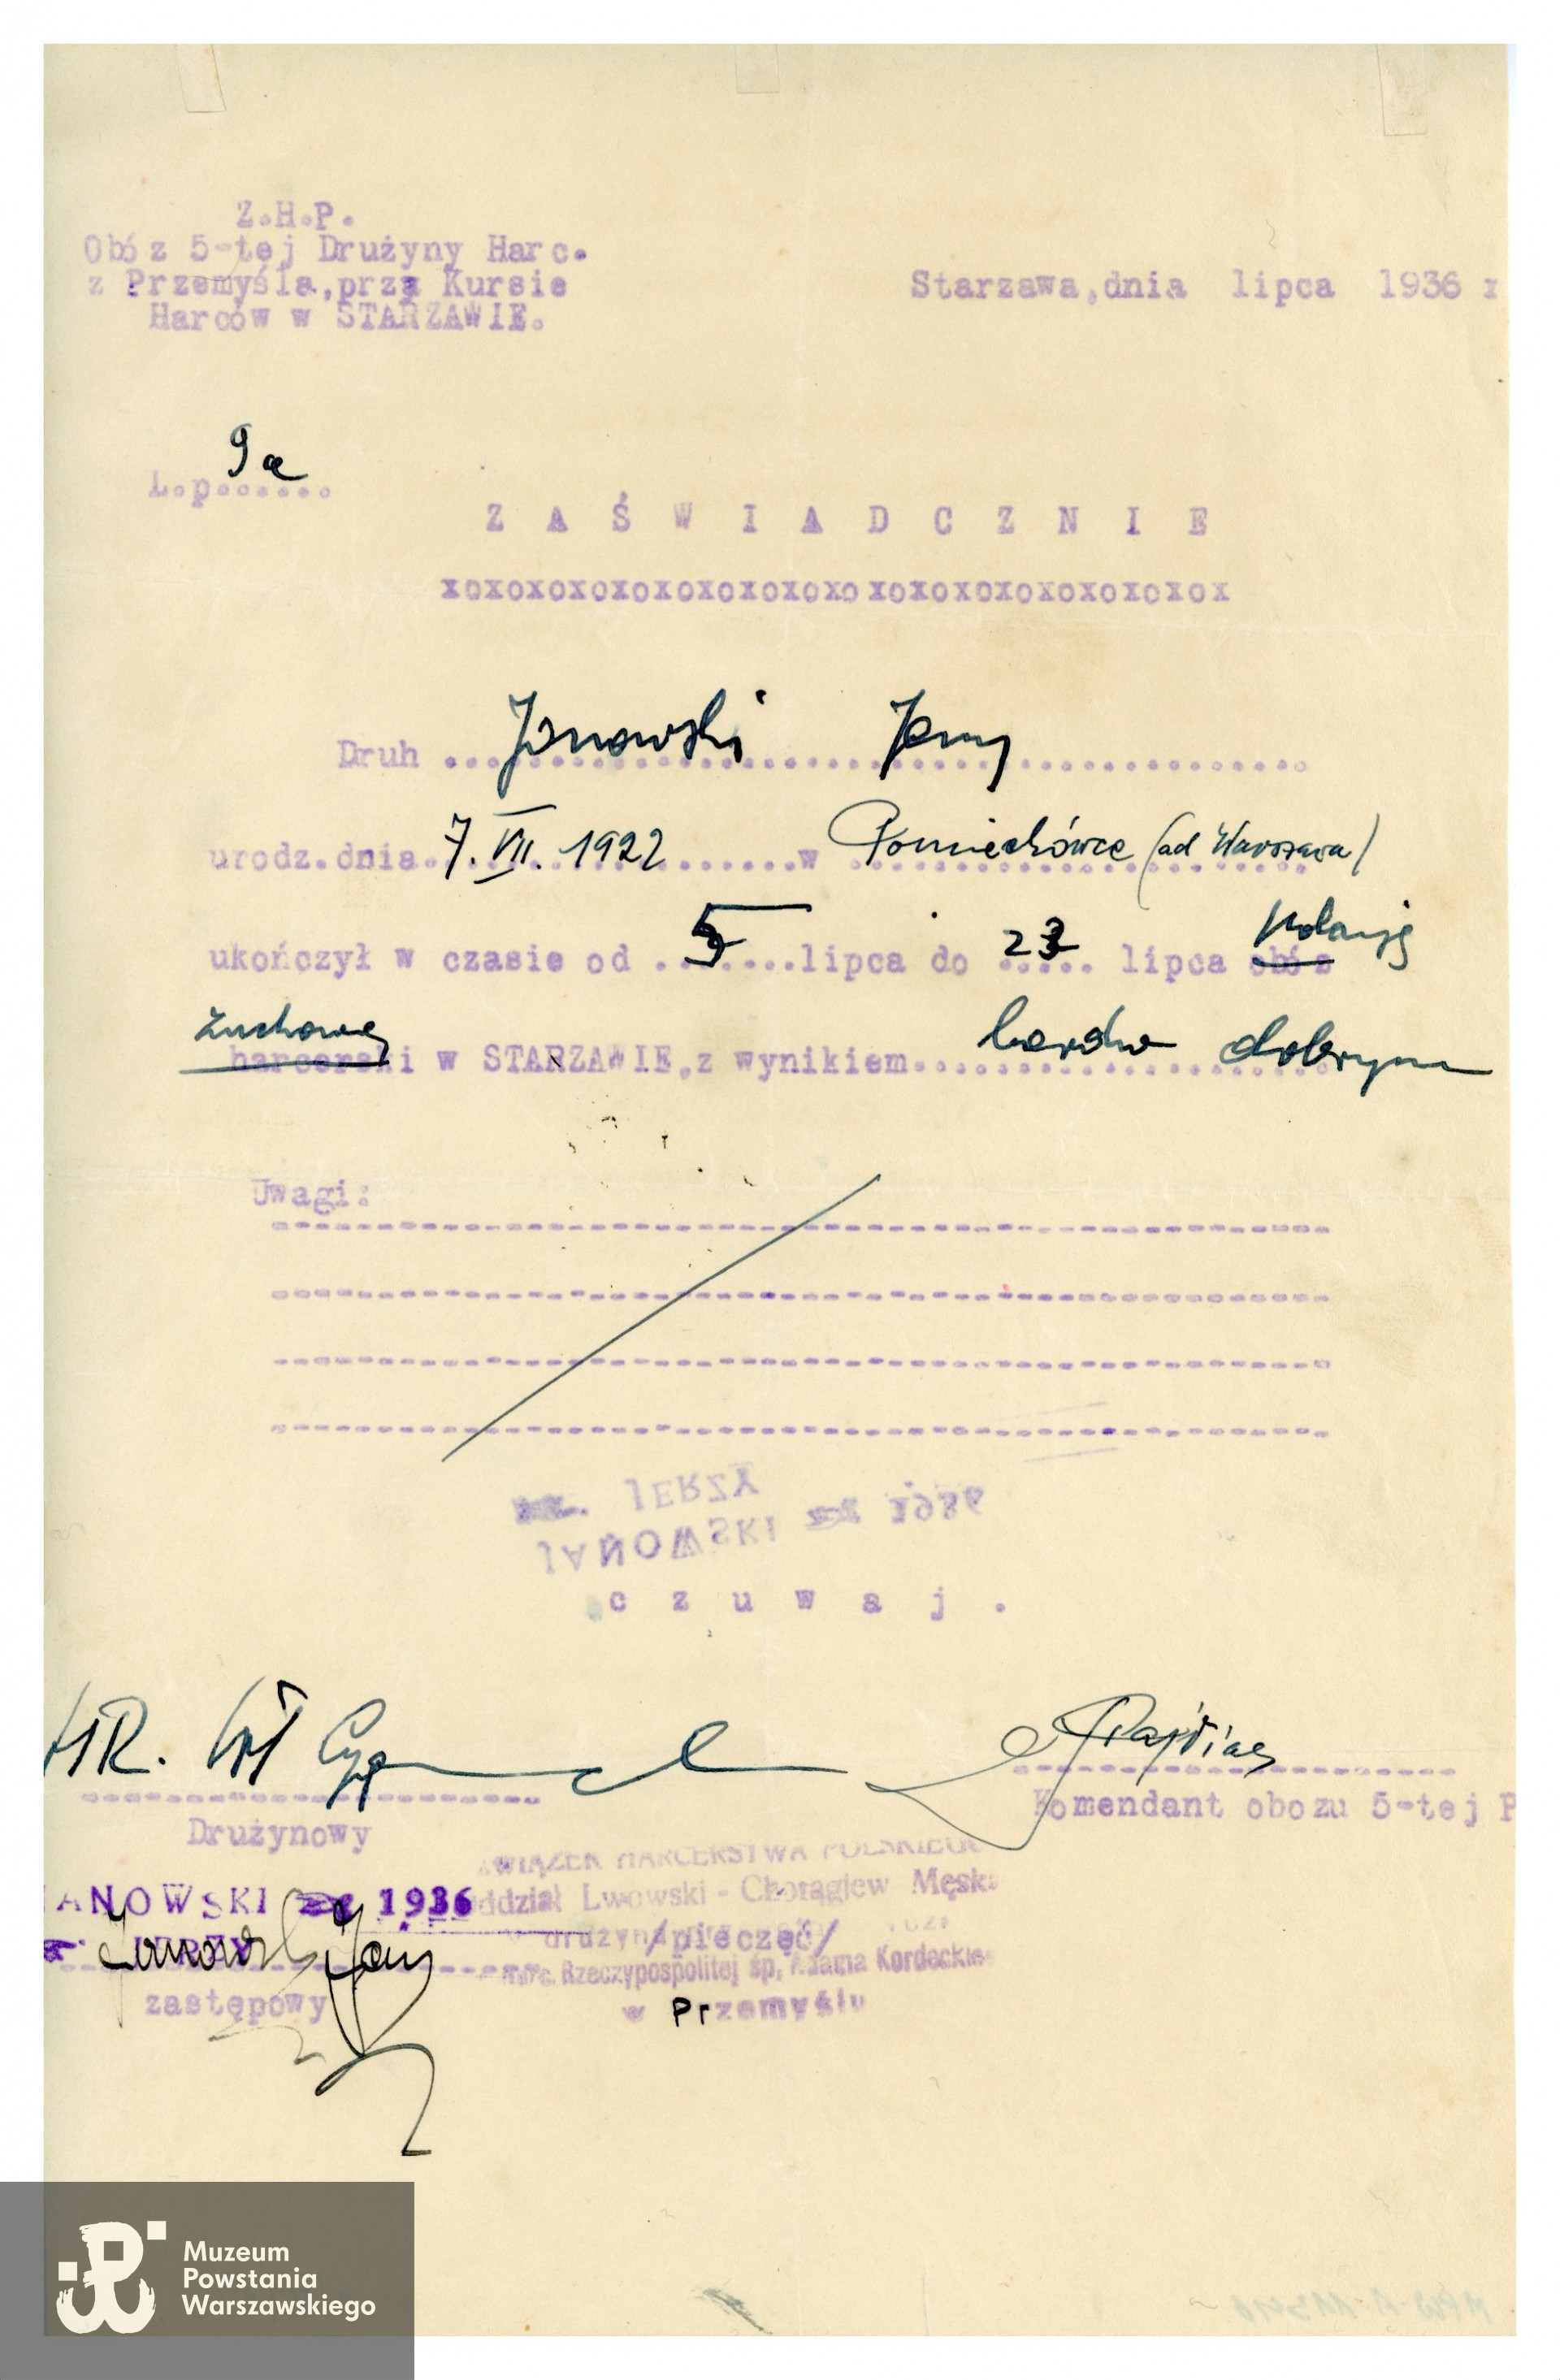 Z.H.P.
Obóz 5-tej Drużyny Harc.
z Przemyśla, przy Kursie
Harców w STARZAWIE.
Starzawa, dnia lipca 1936 r
L.p. 9a
ZAŚWIADCZNIE
xoxoxoxoxoxoxoxoxoxo xoxoxoxoxoxoxoxox
Druh Janowski Jerzy
urodz. dnia 7. VII. 1922 w Pomiechówce (ad Warszawa)
ukończył w czasie od 5 lipca do 23 lipca obóz Kolonję
zuchową
harcerski w STARZAWIE, z wynikiem bardzo dobrym
Uwagi:
JERZY
JANOWSKI 1936
czuwaj.
HR.
Drużynowy
Komendant obozu 5-tej P
ANOWSKI 1936
JERZY
Janowski Jerzy
zastępowy
WIĄZEK HARCERSTWA POLSKIEGO
ddział Lwowski - Chorągiew Męsk
drużyna
/pieczęć/
Rzeczypospolitej śp. Adama Kordeckie
w Przemyślu
Muzeum
Powstania
Warszawskiego